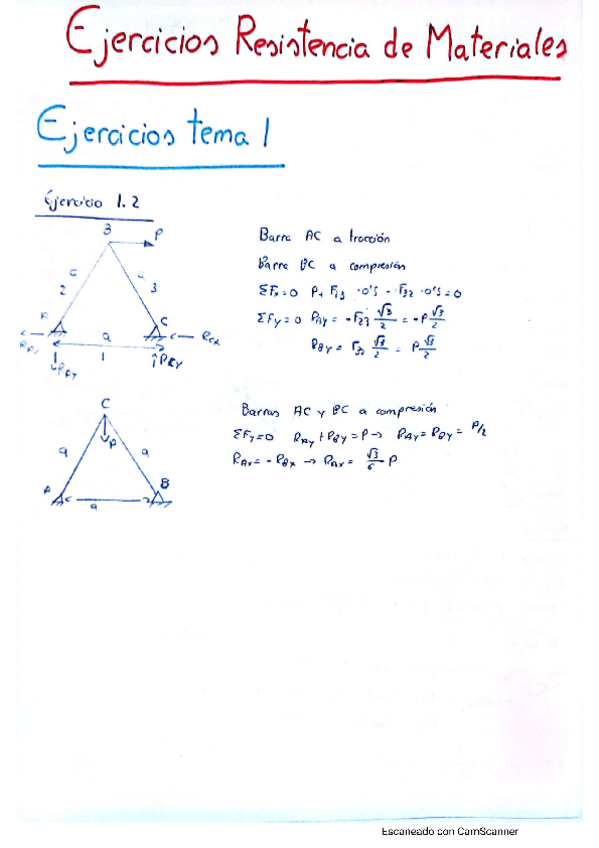 Ejercicios Resistencia de Materiales
Ejercicios tema 1
Ejercicio 1.2
B P
a a
2 3
A C
a RCX
RAY 1 RCY
Barra AC a tracción
Barra BC a compresión
ΣFx=0 P+ F13 ·0's - F32 ·0's=0
ΣFy=0 RAy = -F23 √3/2 = -P √3/2
RBy = F23 √3/2 = P √3/2
C
P
a a
A B
a
Barras AC y BC a compresión
ΣFy=0 RAy + RBy = P → RAy = RBy = P/2
RAx = - RBx → RAx = √3/6 P
Escaneado con CamScanner